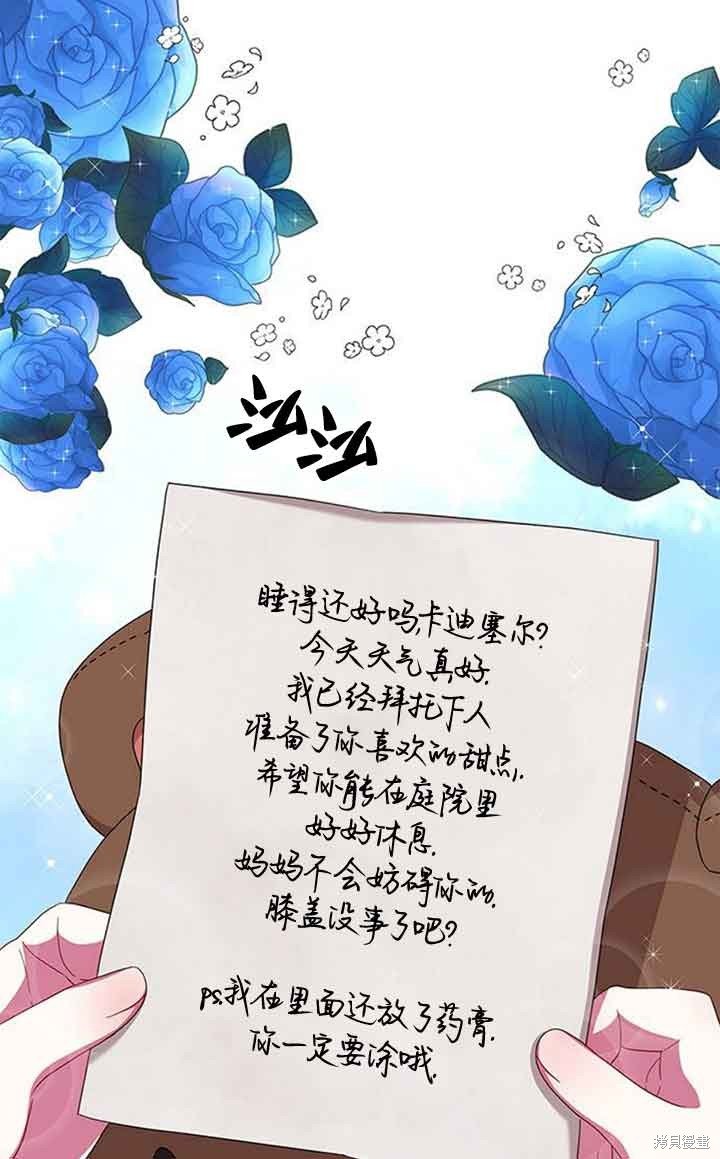 泣泣
睡得还好吗,卡迪塞尔?
今天天气真好.
我已经拜托下人
准备了你喜欢的甜点,
希望你能在庭院里
好好休息.
妈妈不会妨碍你的.
膝盖没事了吧?
ps.我在里面还放了药膏.
你一定要涂哦.
拷貝漫畫